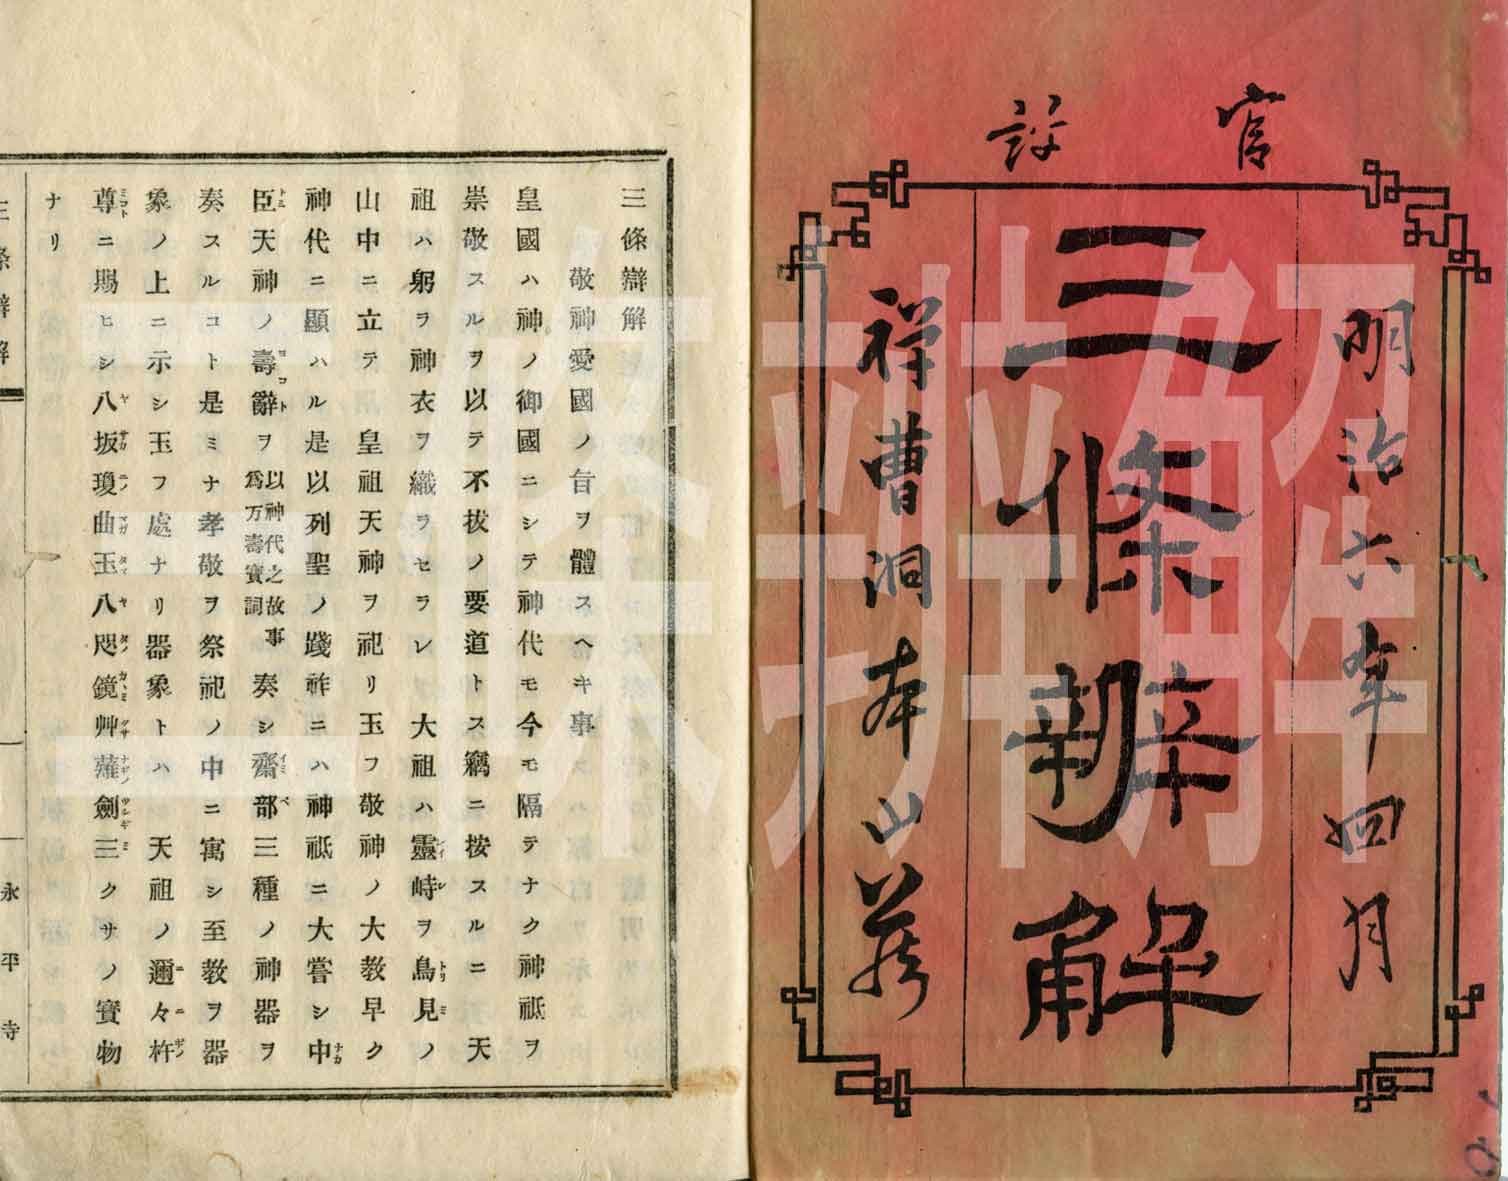 官許
明治六年四月
三條辨解
禅曹洞本山蔵
三條辯解
敬神愛國ノ旨ヲ體スヘキ事
皇國ハ神ノ御國ニシテ神代モ今モ隔テナク神祇ヲ
崇敬スルヲ以テ不拔ノ要道トス竊ニ按スルニ天
祖ハ躬ラ神衣ヲ織ラセラレ 大祖ハ靈畤ヲ鳥見ノ
山中ニ立テ 皇祖天神ヲ祀リ玉フ敬神ノ大教早ク
神代ニ顯ハル是以列聖ノ踐祚ニハ神祇ニ大嘗シ中
臣天神ノ壽辭ヲ以神代之故事為万壽寳詞奏シ齋部三種ノ神器ヲ
奏スルコト是ミナ孝敬ヲ祭祀ノ中ニ寓シ至教ヲ器
象ノ上ニ示シ玉フ處ナリ器象トハ 天祖ノ邇々杵
尊ニ賜ヒシ八坂瓊曲玉八咫鏡艸薙劍三クサノ寳物
ナリ
三條辯解
永平寺
三条弁解